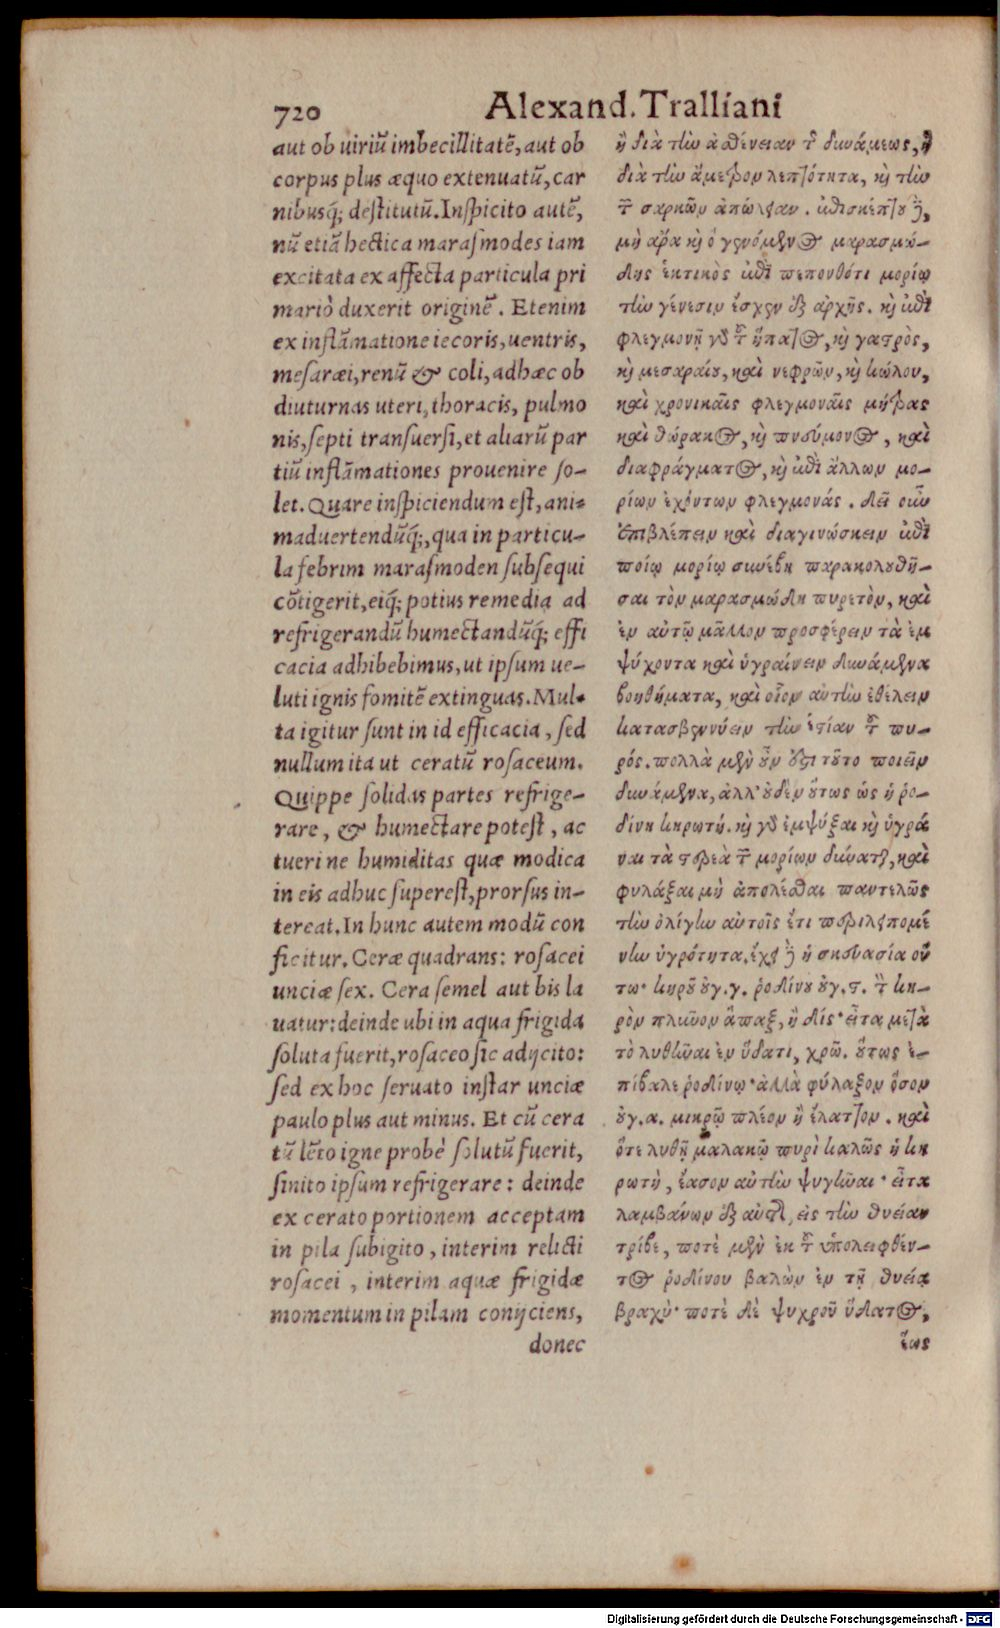 720 Alexand. Tralliani
aut ob uiriũ imbecillitatẽ, aut ob
corpus plus æquo extenuatũ, car
nibusq́; deſtitutũ. Inſpicito autẽ,
nũ etiã hectica maraſmodes iam
excitata ex affecta particula pri
mariò duxerit originẽ. Etenim
ex inflãmatione iecoris, uentris,
meſaræi, renũ & coli, ad hæc ob
diuturnas uteri, thoracis, pulmo
nis, ſepti tranſuerſi, et aliarũ par
tiũ inflãmationes prouenire ſo-
let. Quare inſpiciendum eſt, ani-
maduertendũq́;, qua in particu-
la febrim maraſmoden ſubſequi
cõtigerit, eiq́; potius remedia ad
refrigerandũ humectandũq́; effi
cacia adhibebimus, ut ipſum ue-
luti ignis fomitẽ extinguas. Mul-
ta igitur ſunt in id efficacia, ſed
nullum ita ut ceratũ roſaceum.
Quippe ſolidas partes refrige-
rare, & humectare poteſt, ac
tueri ne humiditas quæ modica
in eis adhuc ſupereſt, prorſus in-
tereat. In hunc autem modũ con
ficitur. Ceræ quadrans: roſacei
unciæ ſex. Cera ſemel aut bis la
uatur: deinde ubi in aqua frigida
ſoluta fuerit, roſaceo ſic adijcito:
ſed ex hoc ſeruato inſtar unciæ
paulo plus aut minus. Et cũ cera
tũ lẽto igne probè ſolutũ fuerit,
ſinito ipſum refrigerare: deinde
ex cerato portionem acceptam
in pila ſubigito, interim relicti
roſacei, interim aquæ frigidæ
momentum in pilam conijciens,
donec
ἢ διὰ τὴν ἀσθένειαν τῆς δυνάμεως, ἢ
διὰ τὴν ἄμετρον λεπτότητα, καὶ τὴν
τῶν σαρκῶν ἀπώλειαν. ἐπισκέπτου δὲ,
μὴ ἄρα καὶ ὁ γενόμενος μαρασμώ-
δης ἑκτικὸς ἐπὶ πεπονθότι μορίῳ
τὴν γένεσιν ἔσχεν ἐξ ἀρχῆς. καὶ ἐπὶ
φλεγμονῇ γὰρ τοῦ ἥπατος, καὶ γαστρὸς,
καὶ μεσαραίου, καὶ νεφρῶν, καὶ κώλου,
καὶ χρονικαῖς φλεγμοναῖς μήτρας
καὶ θώρακος, καὶ πνεύμονος, καὶ
διαφράγματος, καὶ ἐπὶ ἄλλων μο-
ρίων ἐχόντων φλεγμονάς. δεῖ οὖν
ἐπιβλέπειν καὶ διαγινώσκειν ἐπὶ
ποίῳ μορίῳ συνέβη παρακολουθῆ-
σαι τὸν μαρασμώδη πυρετὸν, καὶ
ἐν αὐτῷ μᾶλλον προσφέρειν τὰ ἐμ
ψύχοντα καὶ ὑγραίνειν δυνάμενα
βοηθήματα, καὶ οἷον αὐτὴν ἐθέλειν
κατασβεννύειν τὴν ἑστίαν τοῦ πυ-
ρός. πολλὰ μὲν οὖν ἐστι τοῦτο ποιεῖν
δυνάμενα, ἀλλ' οὐδὲν οὕτως ὡς ἡ ῥο-
δίνη κηρωτή. καὶ γὰρ ἐμψύξαι καὶ ὑγρᾶ
ναι τὰ στερεὰ τῶν μορίων δύναται, καὶ
φυλάξαι μὴ ἀπολέσθαι παντελῶς
τὴν ὀλίγην αὐτοῖς ἔτι περιλειπομέ
νην ὑγρότητα. ἔχει δὲ ἡ σκευασία οὕ
τω· κηροῦ οὐγ. γ. ῥοδίνου οὐγ. ϛ. τὸν κη-
ρὸν πλῦνον ἅπαξ, ἢ δίς· εἶτα μετὰ
τὸ λυθῆναι ἐν ὕδατι, χρῶ. οὕτως ἐ-
πίβαλε ῥοδίνῳ· ἀλλὰ φύλαξον ὅσον
οὐγ. α. μικρῷ πλέον ἢ ἔλαττον. καὶ
ὅτε λυθῇ μαλακῷ πυρὶ καλῶς ἡ κη
ρωτὴ, ἔασον αὐτὴν ψυγῆναι· εἶτα
λαμβάνων ἐξ αὐτῆς, εἰς τὴν θυείαν
τρίβε, ποτὲ μὲν ἐκ τοῦ ὑπολειφθέν-
τος ῥοδίνου βαλὼν ἐν τῇ θυείᾳ
βραχὺ· ποτὲ δὲ ψυχροῦ ὕδατος,
ἕως
Digitalisierung gefördert durch die Deutsche Forschungsgemeinschaft - DFG